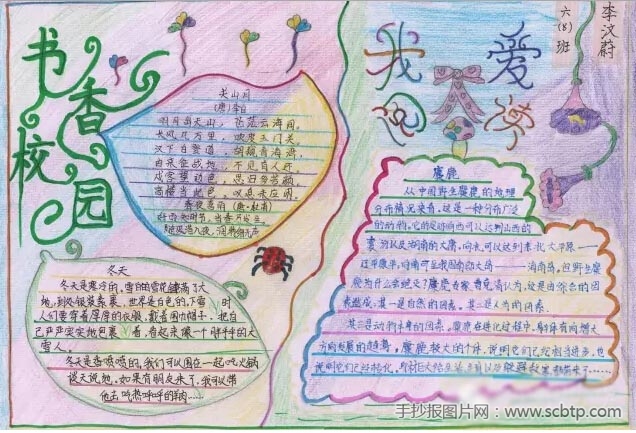 书香校园
关山月
(唐)李白
明月出天山，苍茫云海间。
长风几万里，吹度玉门关。
汉下白登道，胡窥青海湾。
由来征战地，不见有人还。
戍客望边色，思归多苦颜。
高楼当此夜，叹息未应闲。
春夜喜雨(唐·杜甫)
好雨知时节，当春乃发生。
随风潜入夜，润物细无声
冬天
冬天是寒冷的，雪白的雪花铺满了大
地，到处银装素裹，世界是白色的，下雪时
人们要穿着厚厚的衣服，戴着围巾帽子，把自
己严严实实地包裹着，看起来像一个胖胖的大
雪人。
冬天是香喷喷的，我们可以围在一起吃火锅
谈天说地，如果有朋友来了，我可以带
他去吃热呼呼的羊肉……
我爱阅读
六(8)班
李汶蔚
麋鹿
从中国野生麋鹿的地理
分布情况来看，这是一种分布广泛
的动物，它的西边西可以达到山西的
襄汾以及湖南的大庸，向东可以达到东北大平原——
辽平康平，向南可至我国南部大岛——海南岛，但野生麋
鹿为什么会绝灭？麋鹿专家曹克清认为，这是由综合的因
素造成：其一是自然的因素。其二是人为的因素。
其二是动物本身的因素。麋鹿在进化过程中，躯体有向增大
方向发展的趋势，麋鹿极大的个体，说明它们已足够相当进步，也
说明它们已经特化，
手抄报图片网：www.scbtp.com